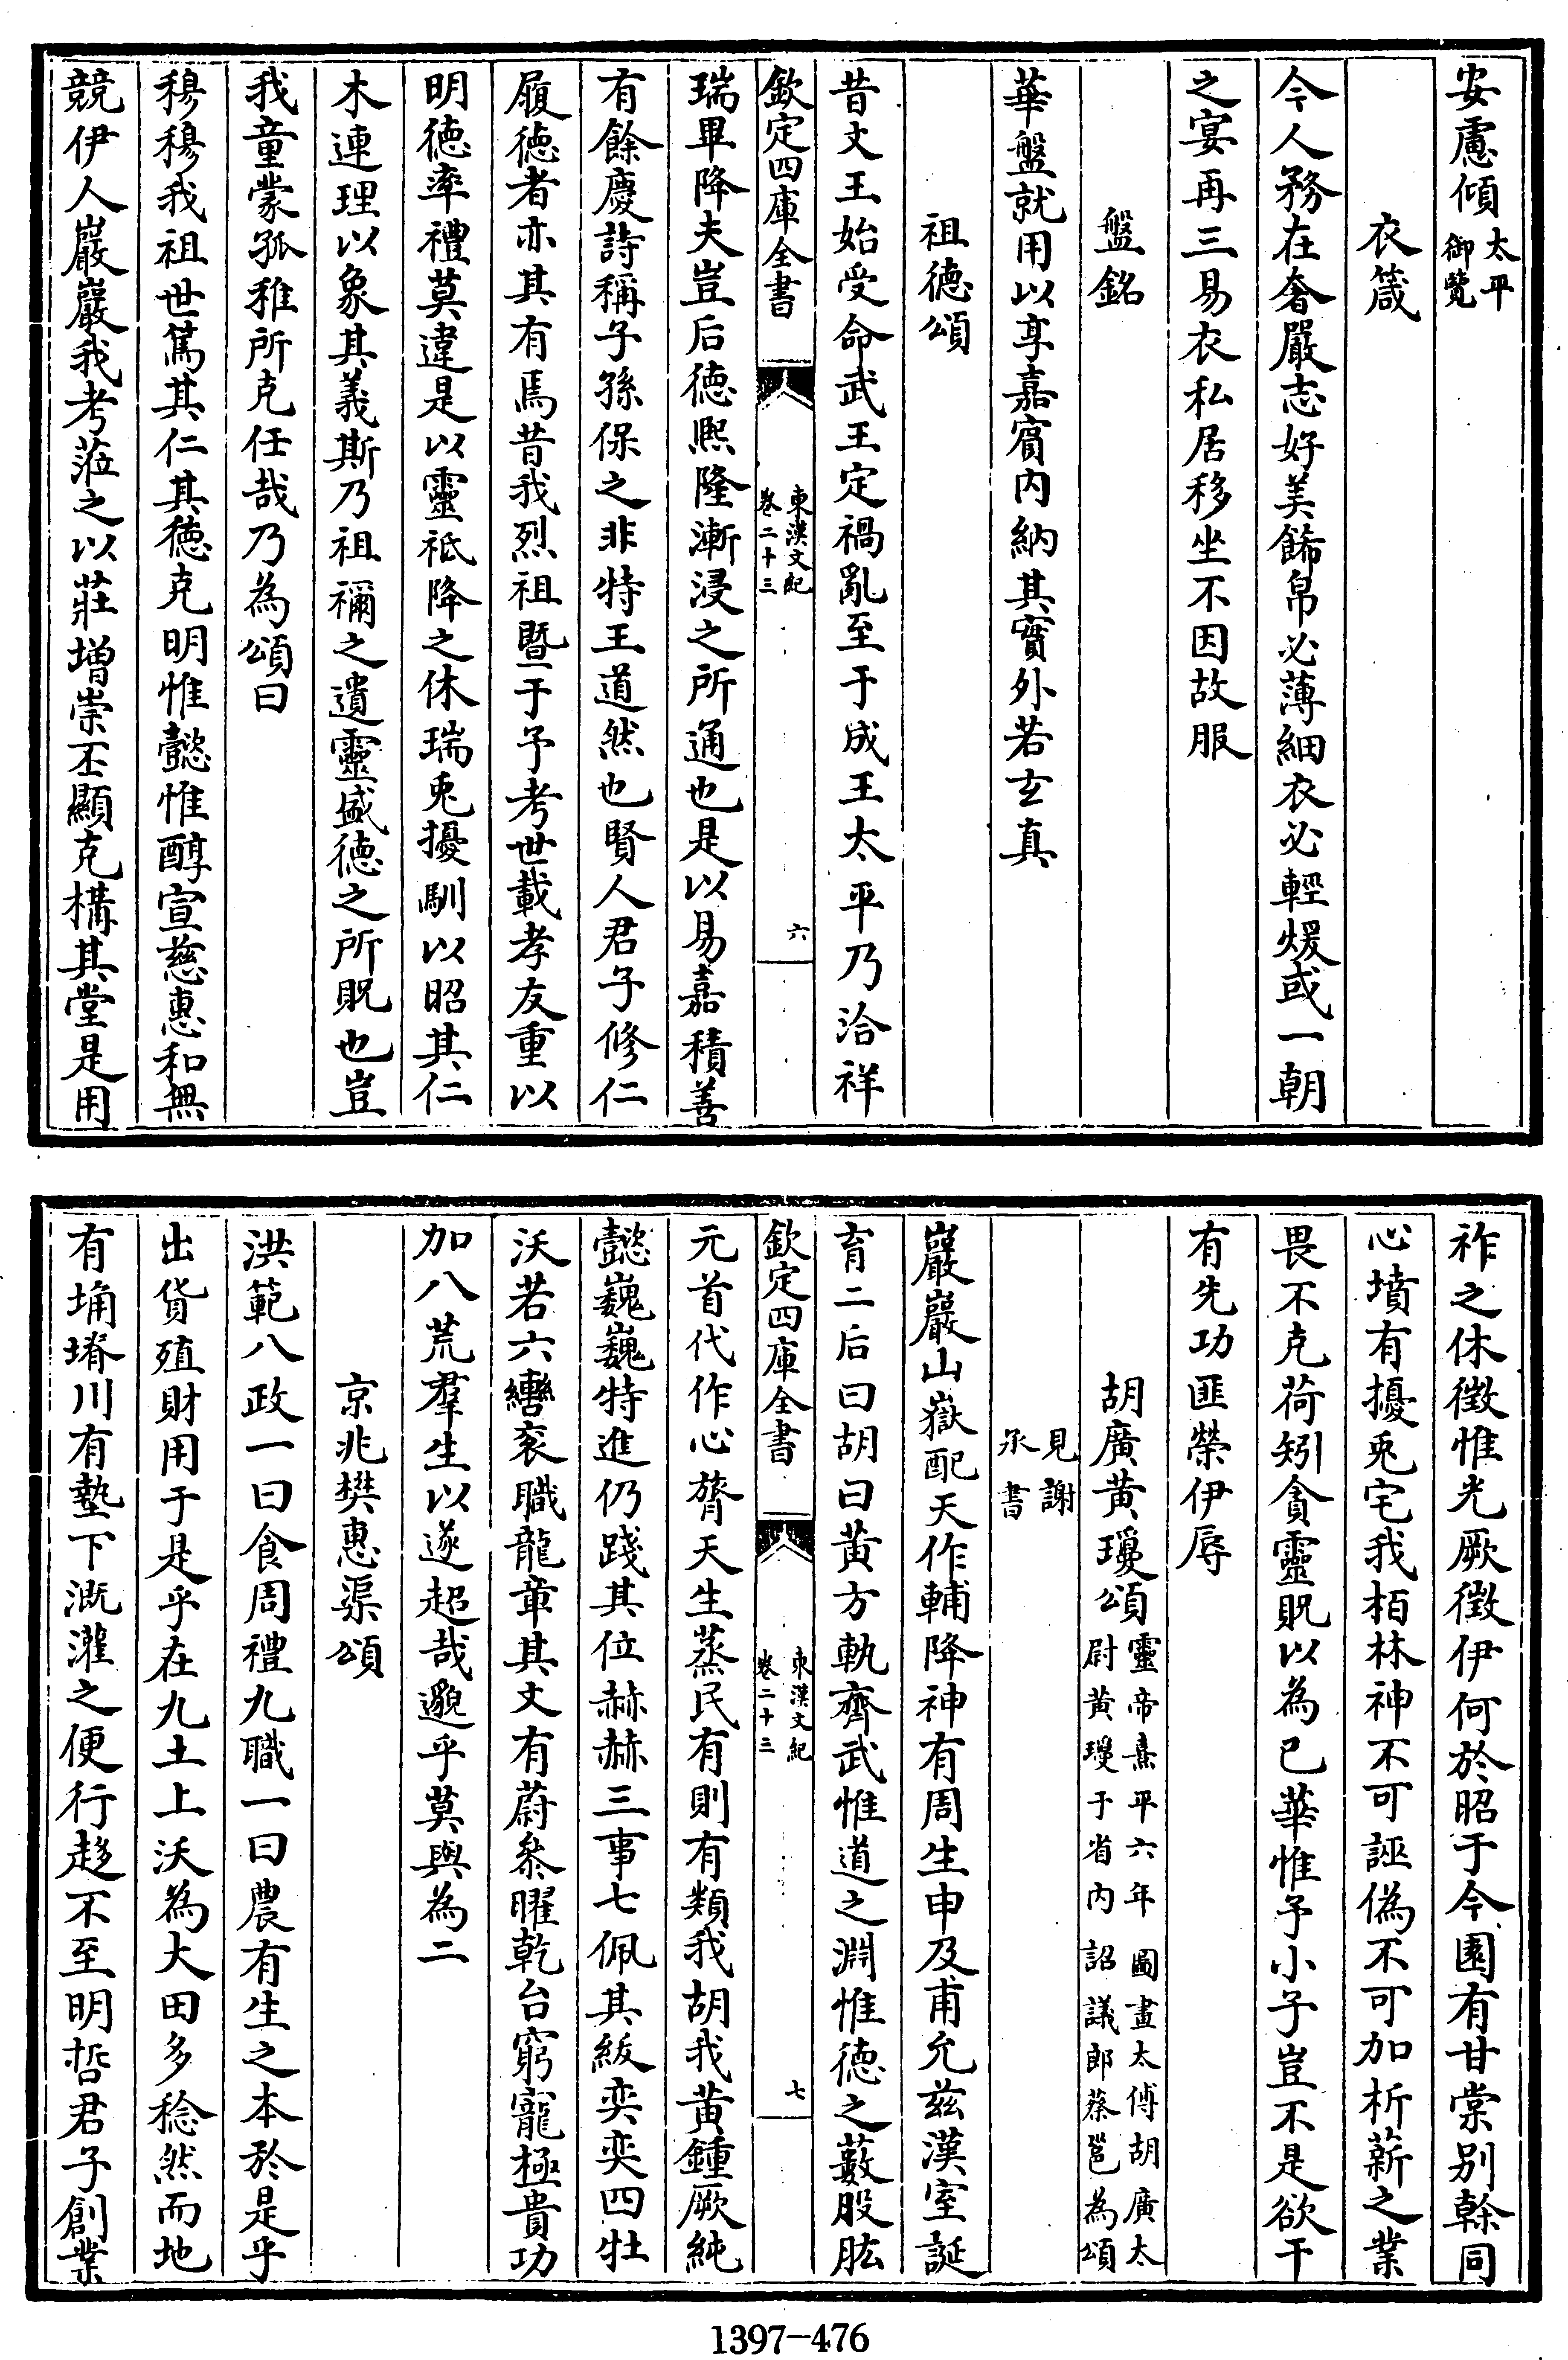 安慮傾太平御覽
衣箴
今人務在奢嚴志好美餙帛必薄細衣必輕煖或一朝
之宴再三易衣私居移坐不因故服
盤銘
華盤就用以享嘉賓内納其實外若玄真
祖徳頌
昔文王始受命武王定禍亂至于成王太平乃洽祥
欽定四庫全書
東漢文紀
卷二十三
六
瑞畢降夫豈后徳熈隆漸浸之所通也是以易嘉積善
有餘慶詩稱子孫保之非特王道然也賢人君子修仁
履徳者亦其有焉昔我烈祖暨于予考世載孝友重以
明徳率禮莫違是以靈祇降之休瑞兎擾馴以昭其仁
木連理以象其義斯乃祖禰之遺靈盛徳之所貺也豈
我童蒙孤稚所克任哉乃為頌曰
穆穆我祖世篤其仁其徳克明惟懿惟醇宣慈惠和無
競伊人巖巖我考蒞之以莊増崇丕顯克構其堂是用
祚之休徴惟光厥徴伊何於昭于今園有甘棠别榦同
心墳有擾兎宅我栢林神不可誣偽不可加析薪之業
畏不克荷矧貪靈貺以為己華惟予小子豈不是欲干
有先功匪榮伊辱
胡廣黄瓊頌靈帝熹平六年圖畫太傅胡廣太
尉黄瓊于省内詔議郎蔡邕為頌
見謝
承書
巖巖山嶽配天作輔降神有周生申及甫允兹漢室誕
育二后曰胡曰黄方軌齊武惟道之淵惟徳之藪股肱
欽定四庫全書
東漢文紀
卷二十三
七
元首代作心膂天生蒸民有則有類我胡我黄鍾厥純
懿巍巍特進仍踐其位赫赫三事七佩其紱奕奕四牡
沃若六轡衮職龍章其文有蔚叅曜乾台窮寵極貴功
加八荒羣生以遂超哉邈乎莫與為二
京兆樊惠渠頌
洪範八政一曰食周禮九職一曰農有生之本於是乎
出貨殖財用于是乎在九土上沃為大田多稔然而地
有埆塉川有墊下溉灌之便行趍不至明哲君子創業
1397-476